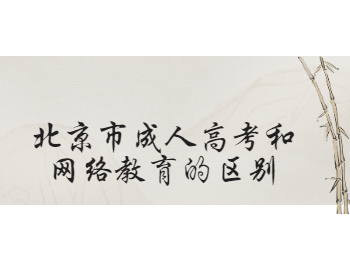 北京市成人高考和
网络教育的区别